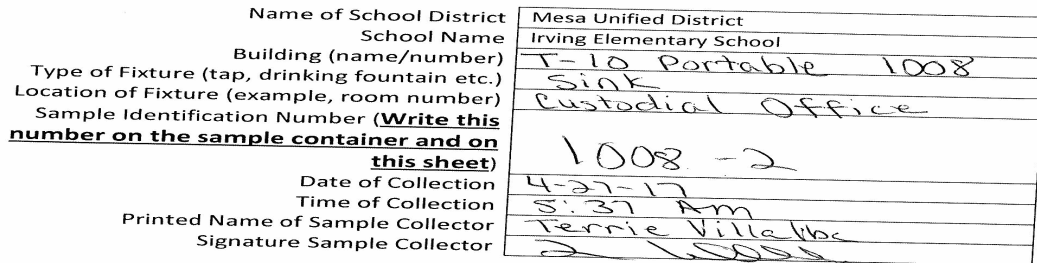 Name of School District Mesa Unified District
School Name Irving Elementary School
Building (name/number) T-10 Portable 1008
Type of Fixture (tap, drinking fountain etc.) Sink
Location of Fixture (example, room number) Custodial Office
Sample Identification Number (Write this
number on the sample container and on
this sheet) 1008-2
Date of Collection 4-27-17
Time of Collection 5:37 Am
Printed Name of Sample Collector Terrie Villalba
Signature Sample Collector